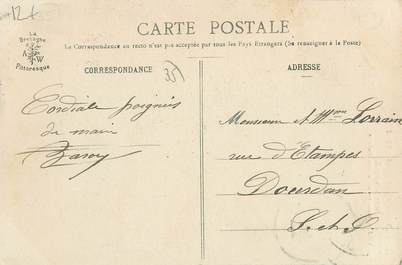 12f
La
Bretagne
A W
Pittoresque
CARTE POSTALE
La Correspondance au recto n'est pas acceptée par tous les Pays Etrangers (Se renseigner à la Poste)
CORRESPONDANCE
35
ADRESSE
Cordiale poignée
de main
Monsieur et Mme Lorrain
rue d'Etampes
Dourdan
S. et O.